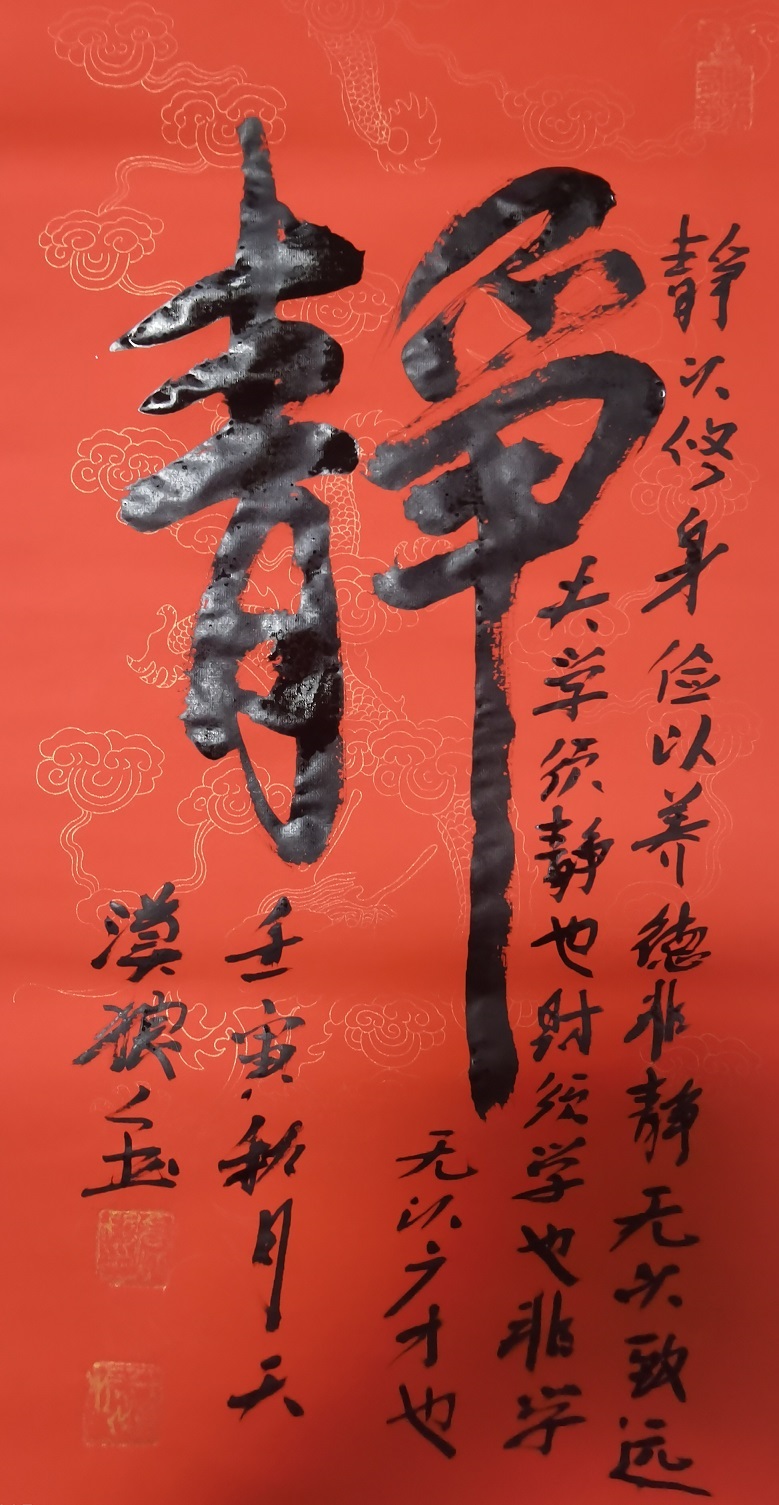 静
静以修身俭以养德非静无以致远
夫学须静也财须学也非学
无以广才也
壬寅秋月天
漠